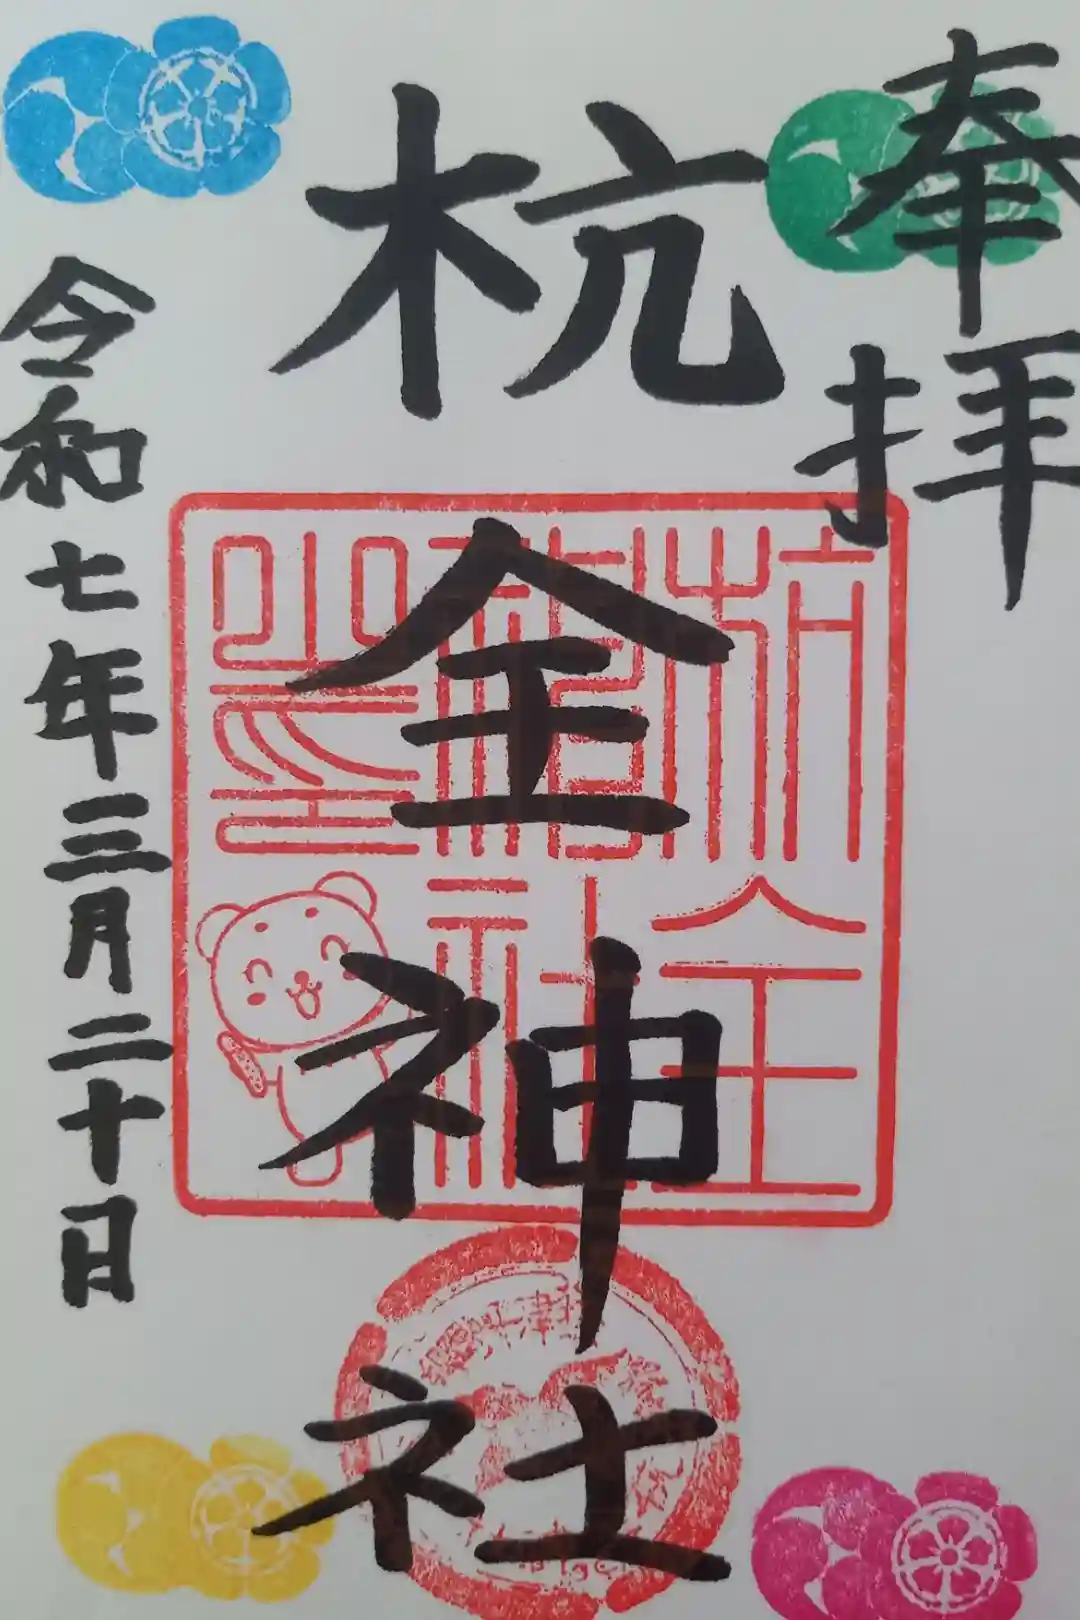 奉拝
杭全神社
杭全
神社
之印
令和七年三月二十日